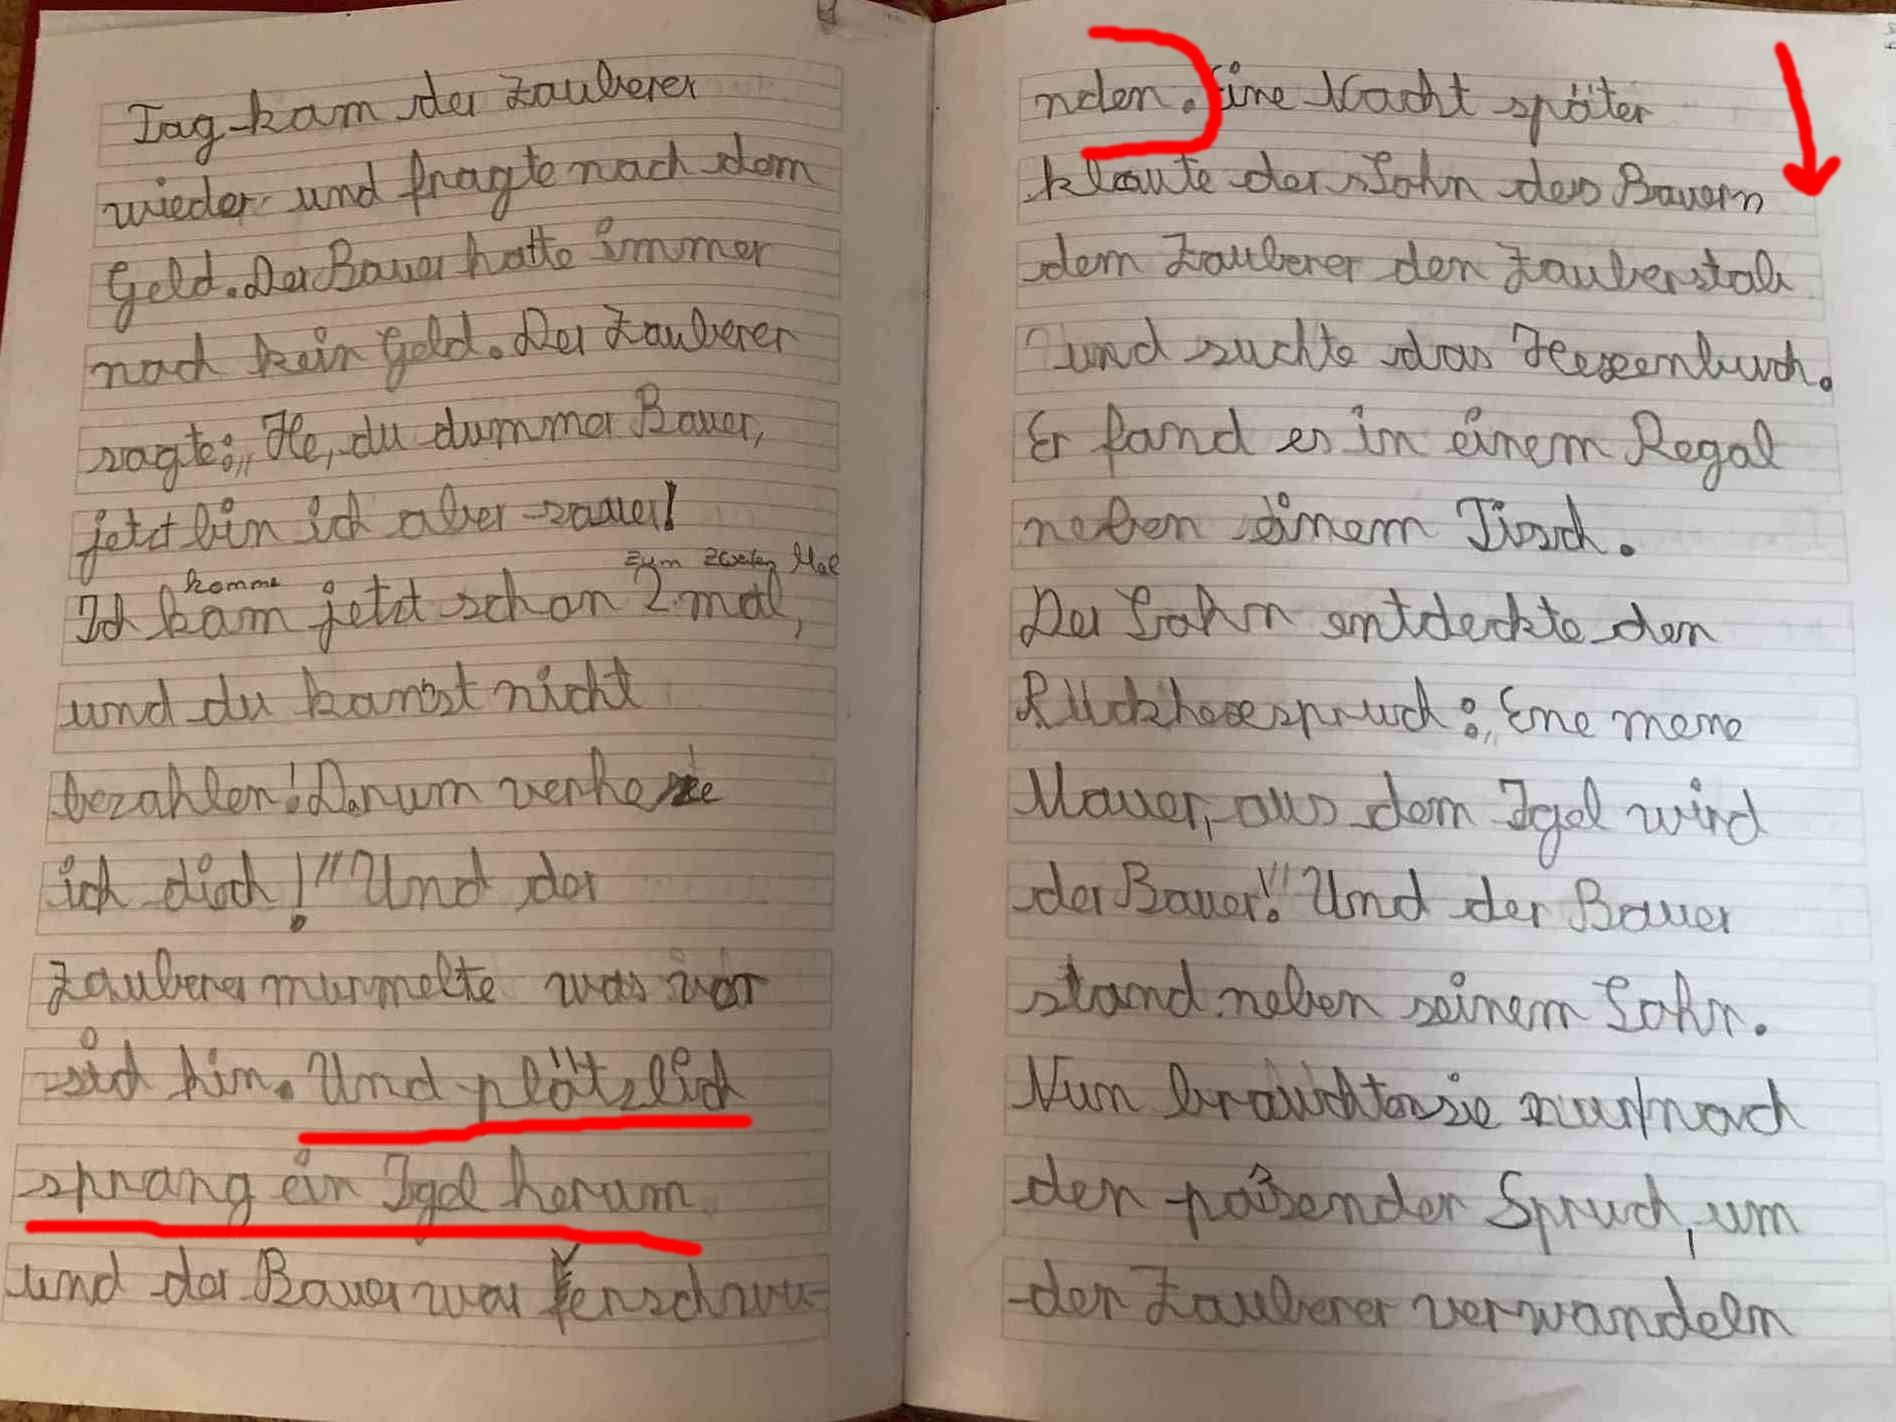 Tag kam der Zauberer
wieder und fragte nach dem
Geld. Der Bauer hatte immer
noch kein Geld. Der Zauberer
sagte: „He, du dummer Bauer,
jetzt bin ich aber sauer!
komme zum zweiten Mal
Ich kam jetzt schon 2 mal,
und du kannst nicht
bezahlen! Darum verhexe
ich dich!" Und der
Zauberer murmelte was vor
sich hin. Und plötzlich
sprang ein Igel herum
und der Bauer war verschwu-
nden. Eine Nacht später
klaute der Sohn des Bauern
dem Zauberer den Zauberstab
und suchte das Hexenbuch.
Er fand es in einem Regal
neben einem Tisch.
Der Sohn entdeckte den
Rückhexespruch: „Ene mene
Mauer, aus dem Igel wird
der Bauer!" Und der Bauer
stand neben seinem Sohn.
Nun brauchten sie nur noch
den paßenden Spruch, um
den Zauberer verwandeln